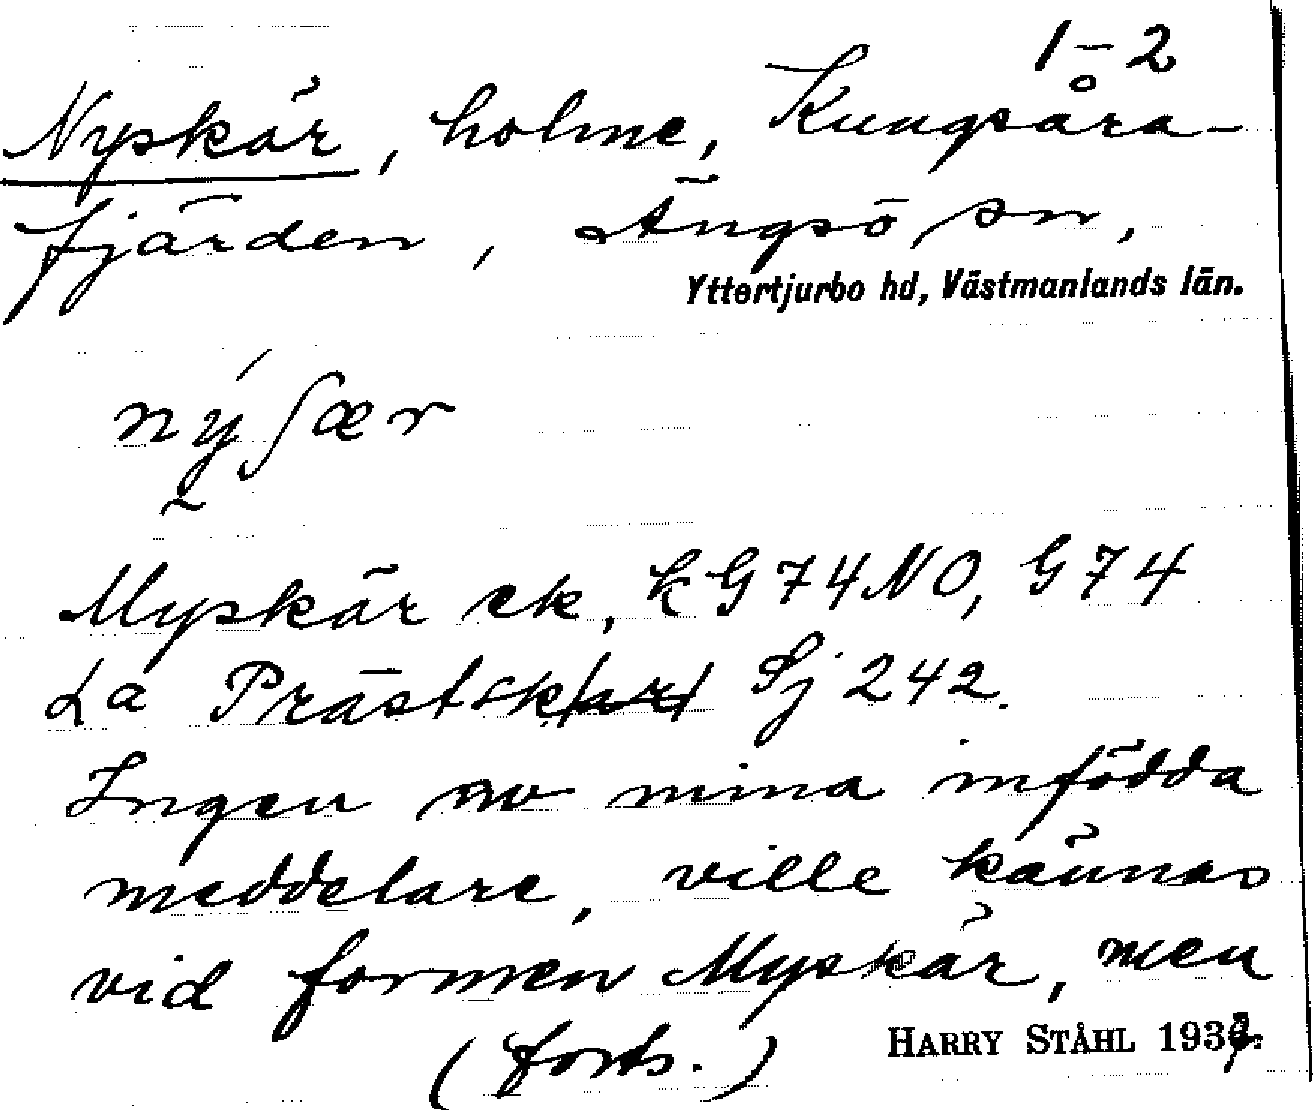 1-2
Nyskär, holme, Kungsåra-
fjärden, Ängsö sn,
Yttertjurbo hd, Västmanlands län.
nýʃær
Myskär ek, kG74NO, G74
La Prästsk/är/ Sj 242.
Ingen av mina infödda
meddelare, ville kännas
vid formen Myskär, men
(forts.)
HARRY STÅHL 193